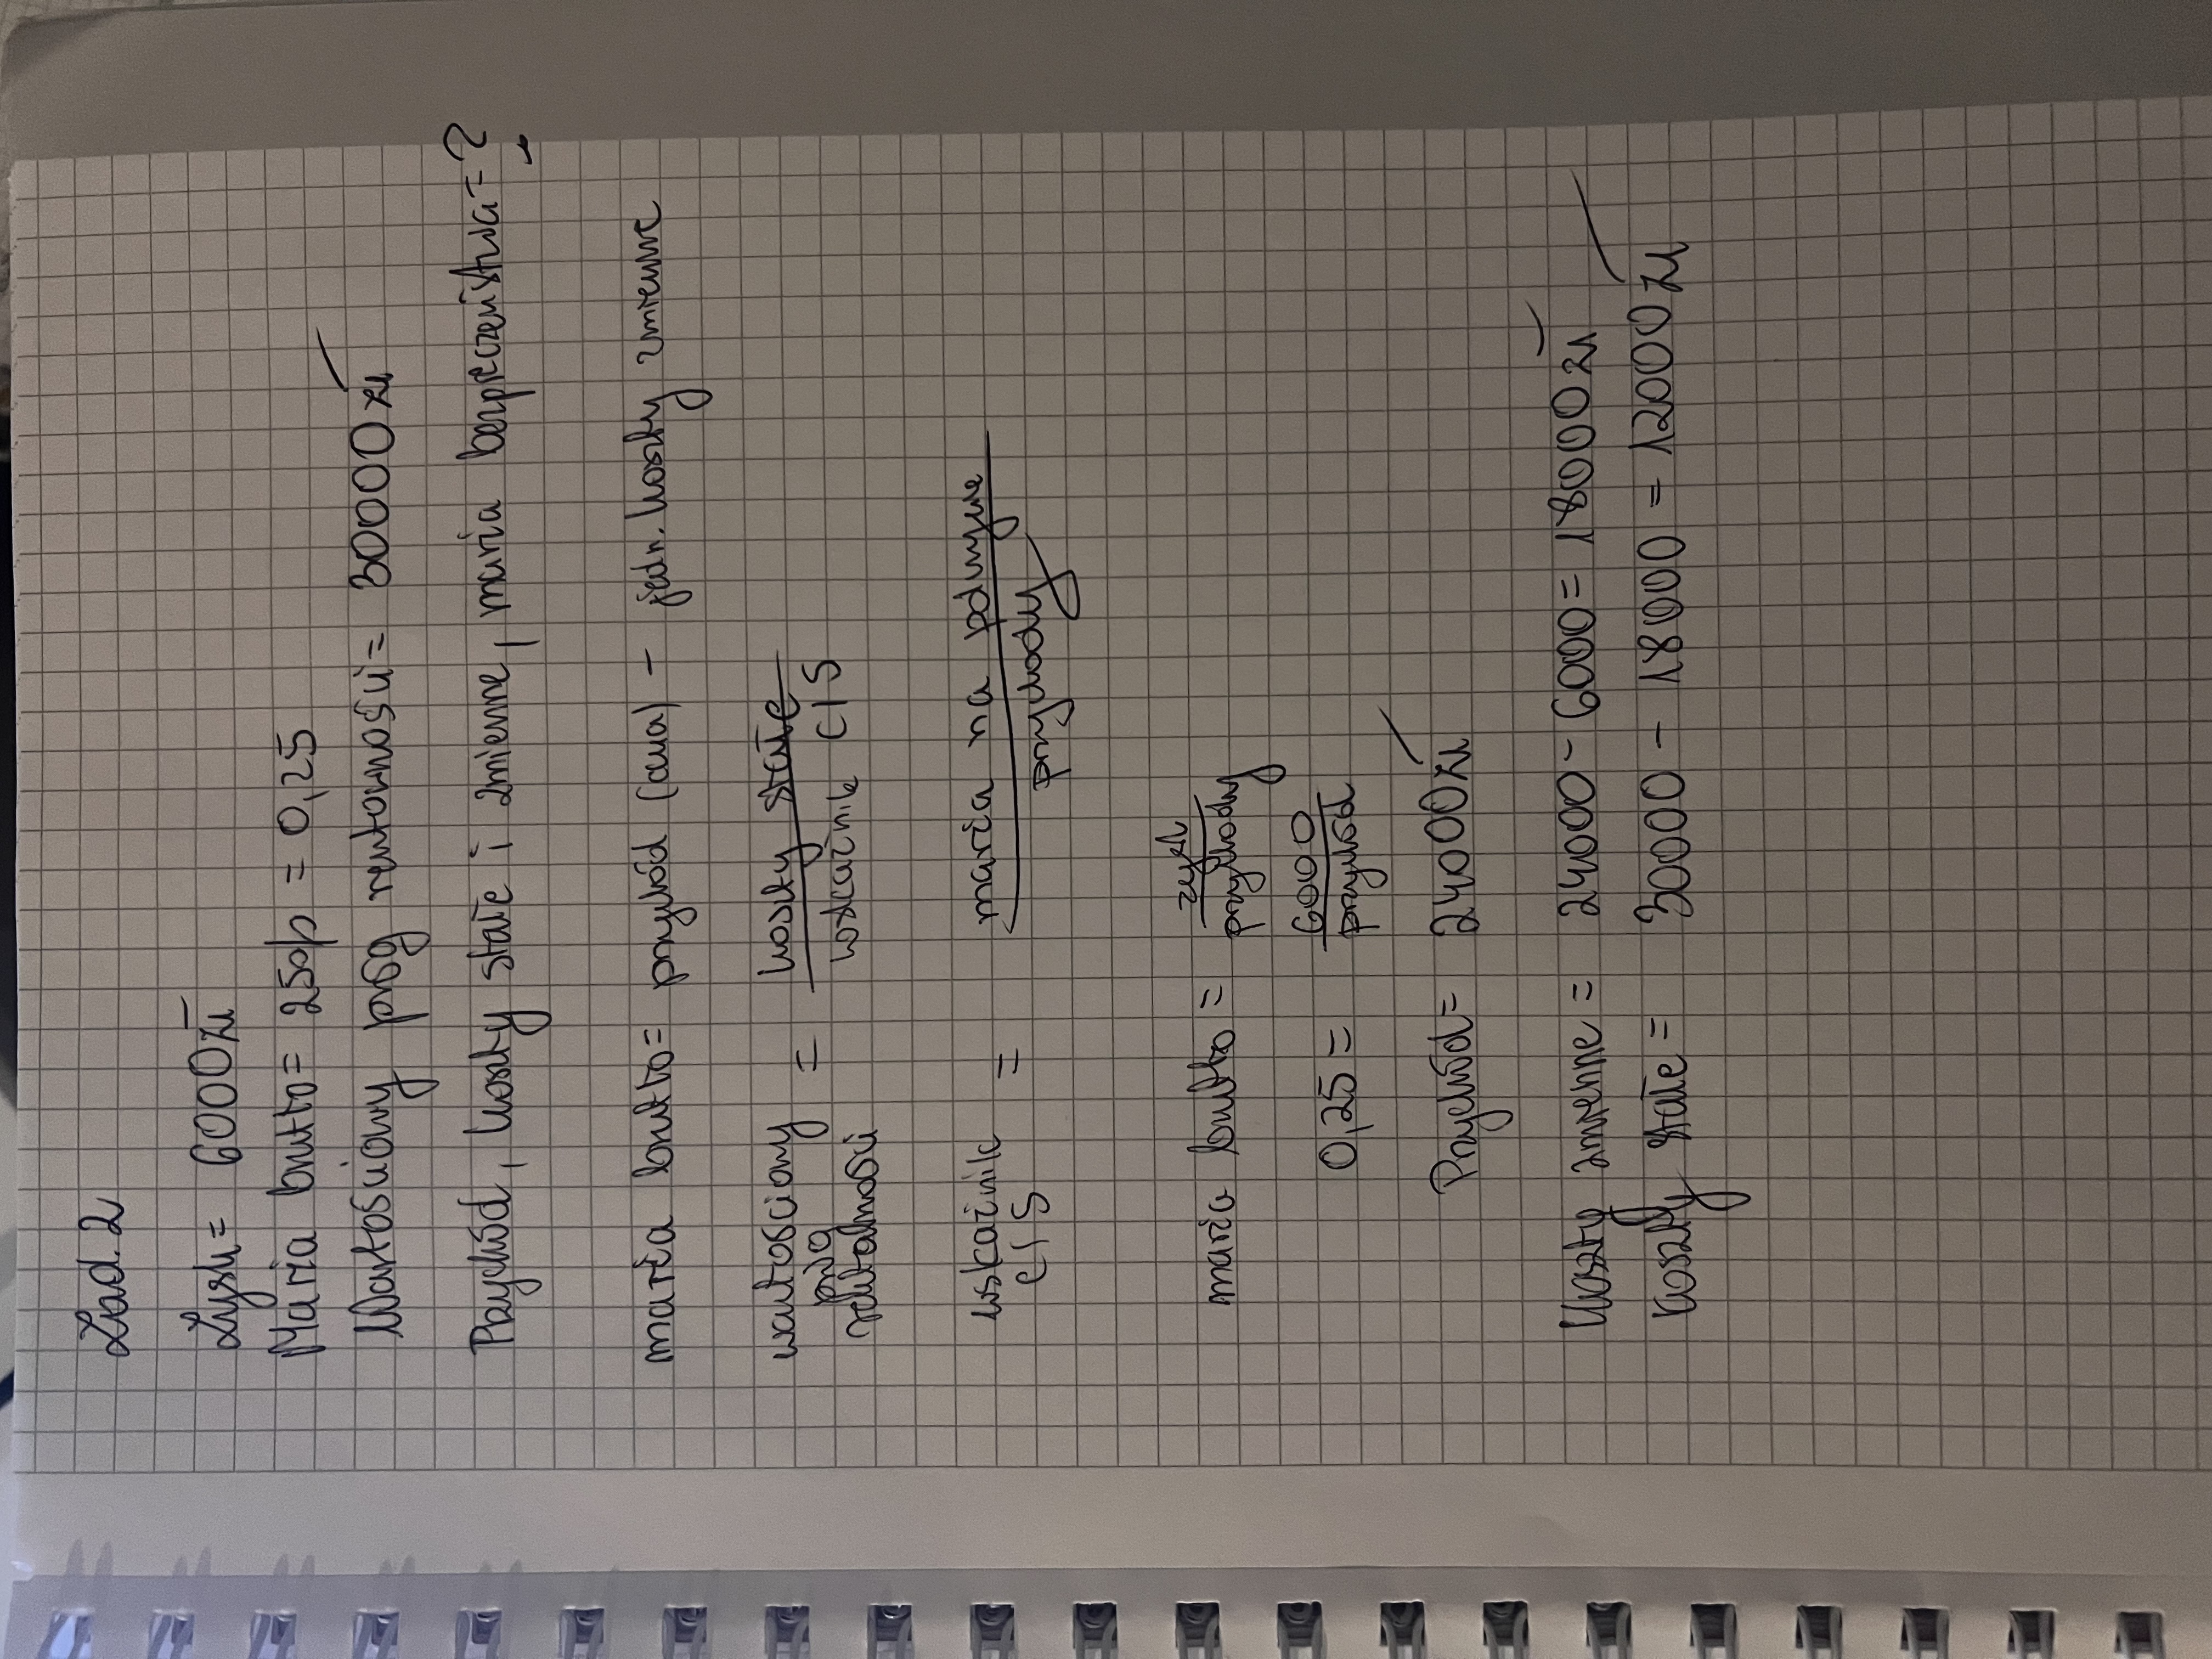 Zad. 2
Zysk = 6000 zł
Marża brutto = 25% = 0,25
Wartościowy próg rentowności = 30000 zł
Przychód, koszty stałe i zmienne, marża bezpieczeństwa = ?
marża brutto = przychód (cena) - jedn. koszty zmienne
wartościowy próg rentowności = koszty stałe / wskaźnik C/S
wskaźnik C/S = marża na pokrycie / przychody
marża brutto = zysk / przychody
0,25 = 6000 / przychód
Przychód = 24000 zł
Koszty zmienne = 24000 - 6000 = 18000 zł
Koszty stałe = 30000 - 18000 = 12000 zł